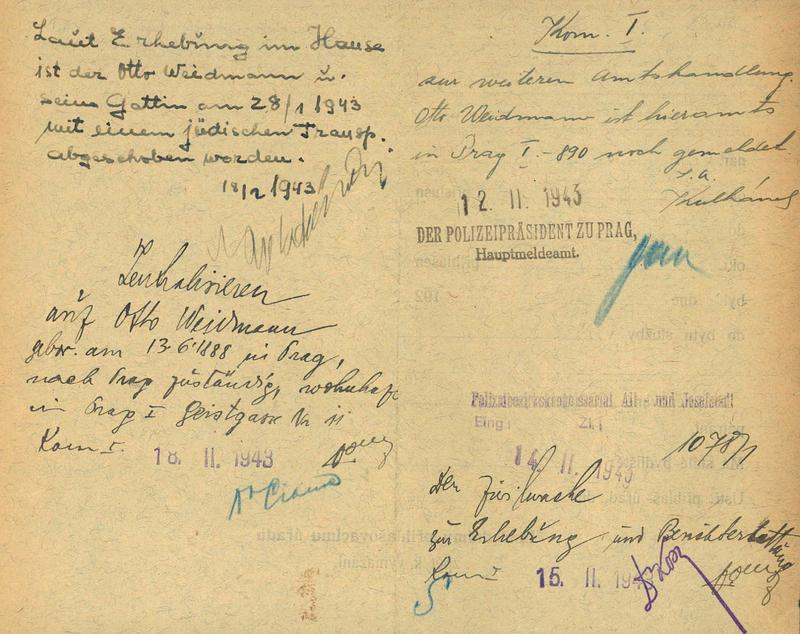 Laut Erhebung im Hause
ist der Otto Weidmann u.
seine Gattin am 28/1 1943
mit einem jüdischen Transp.
abgeschoben worden.
18/2 1943
Zentralisieren
auf Otto Weidmann
gebor. am 13.6.1888 in Prag,
nach Prag zuständig, wohnhaft
in Prag I Geistgasse Nr 11
Kom I.
18. II. 1943
Kom. I.
zur weiteren Amtshandlung.
Otto Weidmann ist hieramts
in Prag I.-890 noch gemeldet.
12. II. 1943
DER POLIZEIPRÄSIDENT ZU PRAG,
Hauptmeldeamt.
Polizeibezirkskommissariat Alt- und Josefstadt
Eing. Zl.
14. II. 1943
1078/1
Der
zur Erhebung und Berichterstattung
Kom I
15. II. 1943